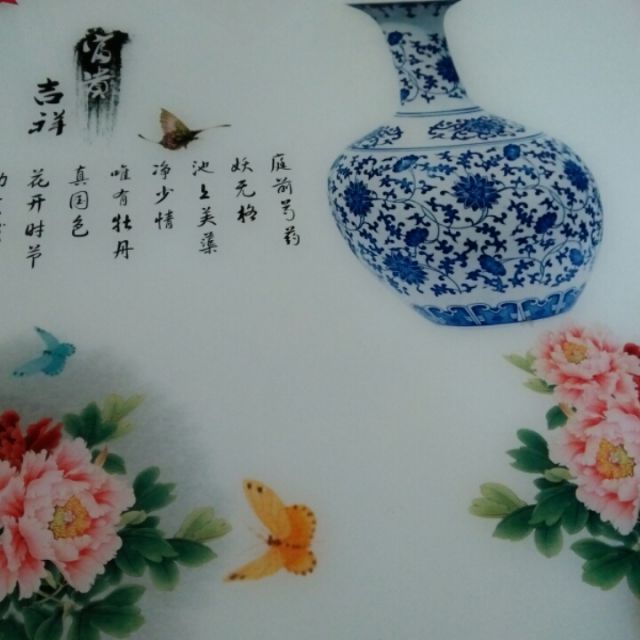 吉祥
庭前芍药
妖无格
池上芙蕖
净少情
唯有牡丹
真国色
花开时节